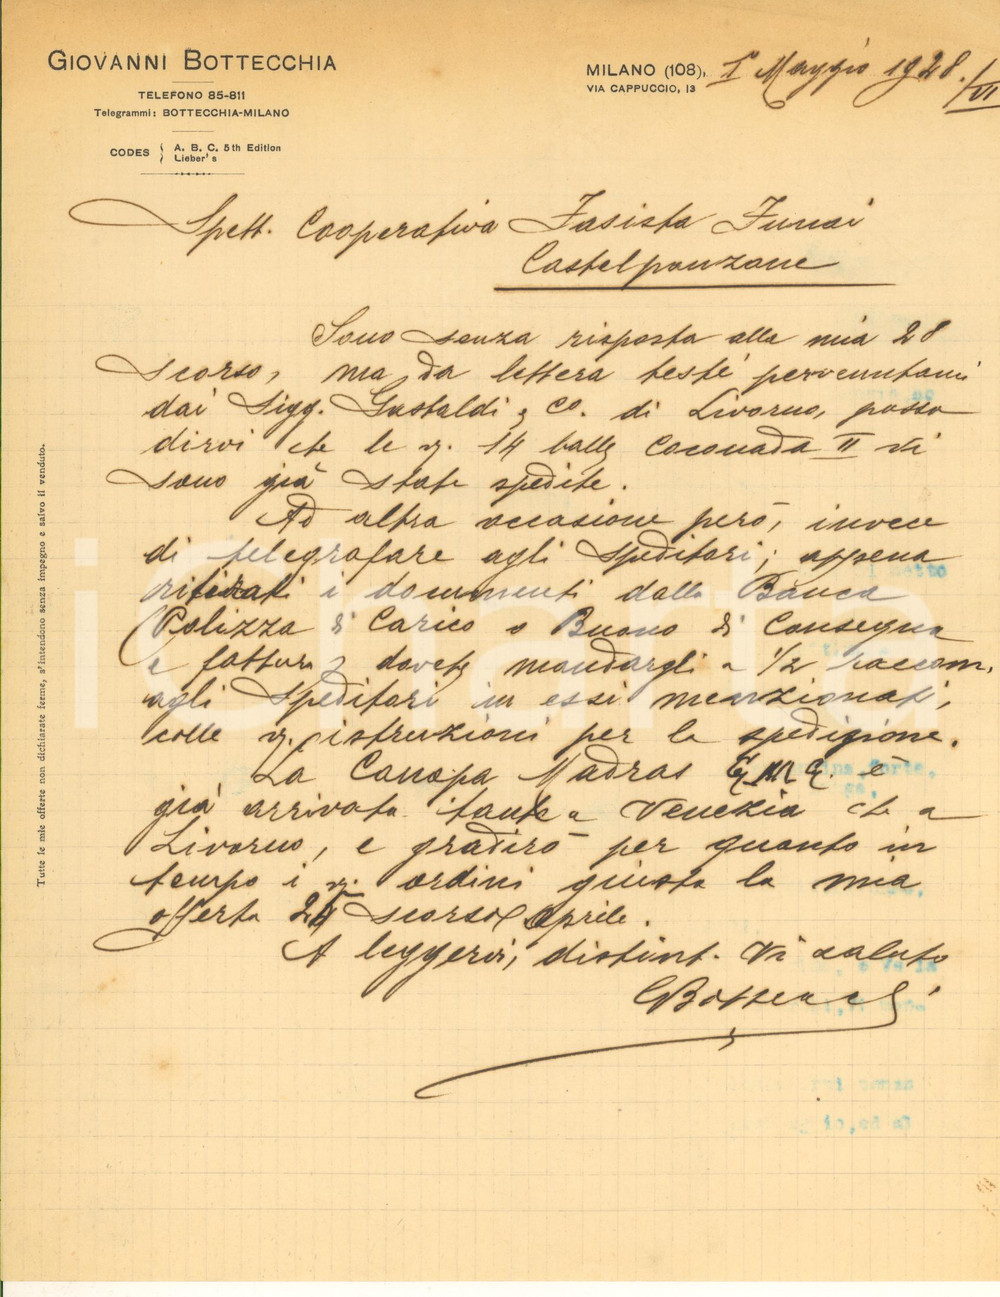 GIOVANNI BOTTECCHIA
TELEFONO 85-811
Telegrammi: BOTTECCHIA-MILANO
CODES { A. B. C. 5th Edition
Lieber's
MILANO (108), 1° Maggio 1928./VI
VIA CAPPUCCIO, 13
Spett. Cooperativa Fasista Funai
Castelponzone
Sono senza risposta alla mia 28
scorso, ma da lettera testé pervenutami
dai Sigg. Gastaldi & Co. di Livorno, posso
dirvi che le v. 14 balle Coconada II vi
sono già state spedite.
Ad altra occasione però, invece
di telegrafare agli Speditori, appena
ritirati i documenti dalla Banca
(Polizza di Carico o Buono di Consegna
e fattura) dovete mandargli a 1/2 raccom.
agli Speditori in essi menzionati,
colle v. istruzioni per la spedizione.
La Canapa Madras è
già arrivata tanto a Venezia che a
Livorno, e gradirò per quanto in
tempo i v. ordini giusta la mia
offerta scorso Aprile.
A leggervi, distint. Vi saluto
GBottecchia
Tutte le mie offerte non dichiarate ferme, s'intendono senza impegno e salvo il venduto.
iCharta